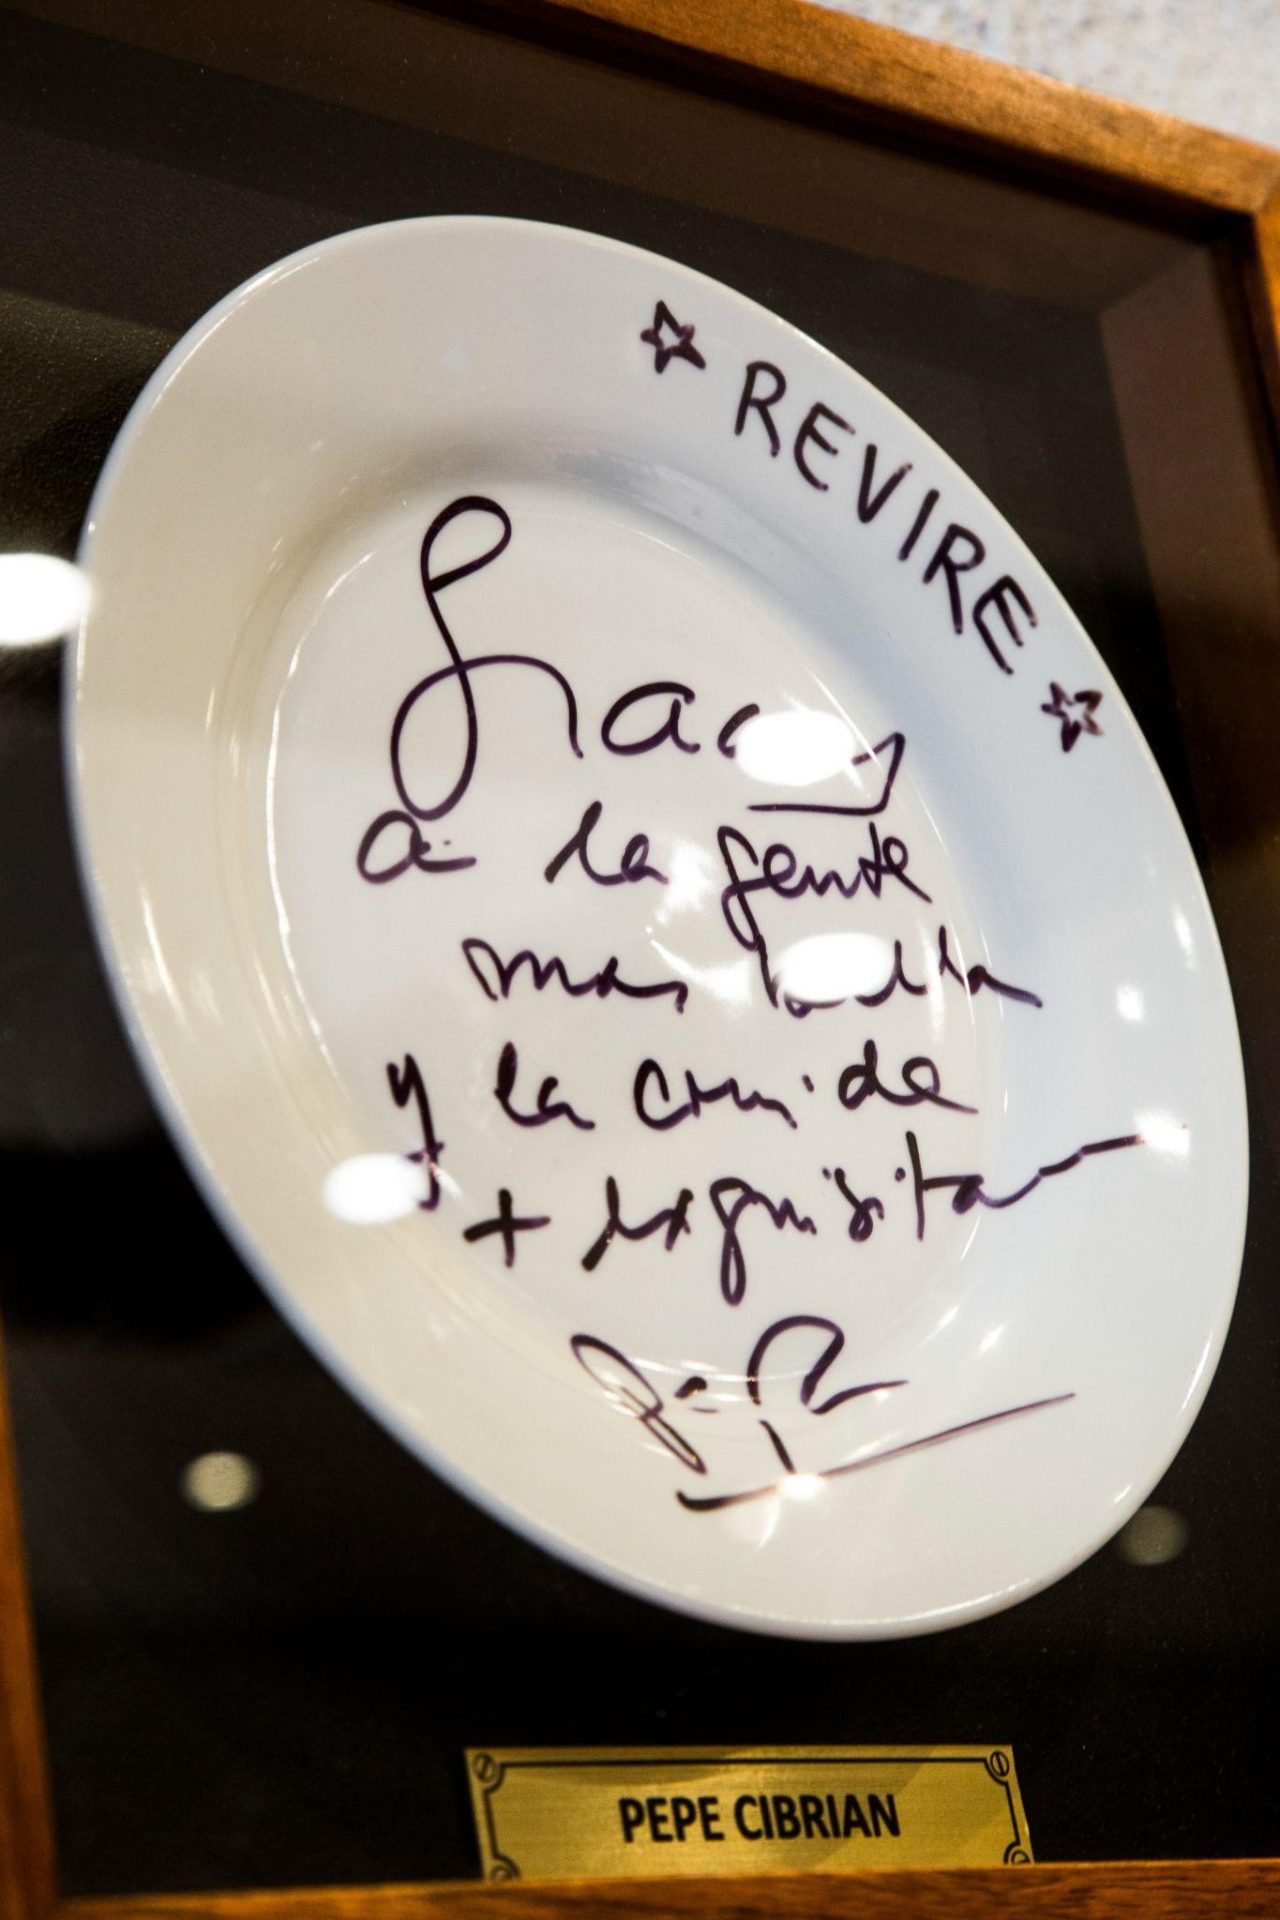 ☆ REVIRE ☆
Gracias
a la gente
mas bella
y la comida
+ exquisita
PEPE CIBRIAN